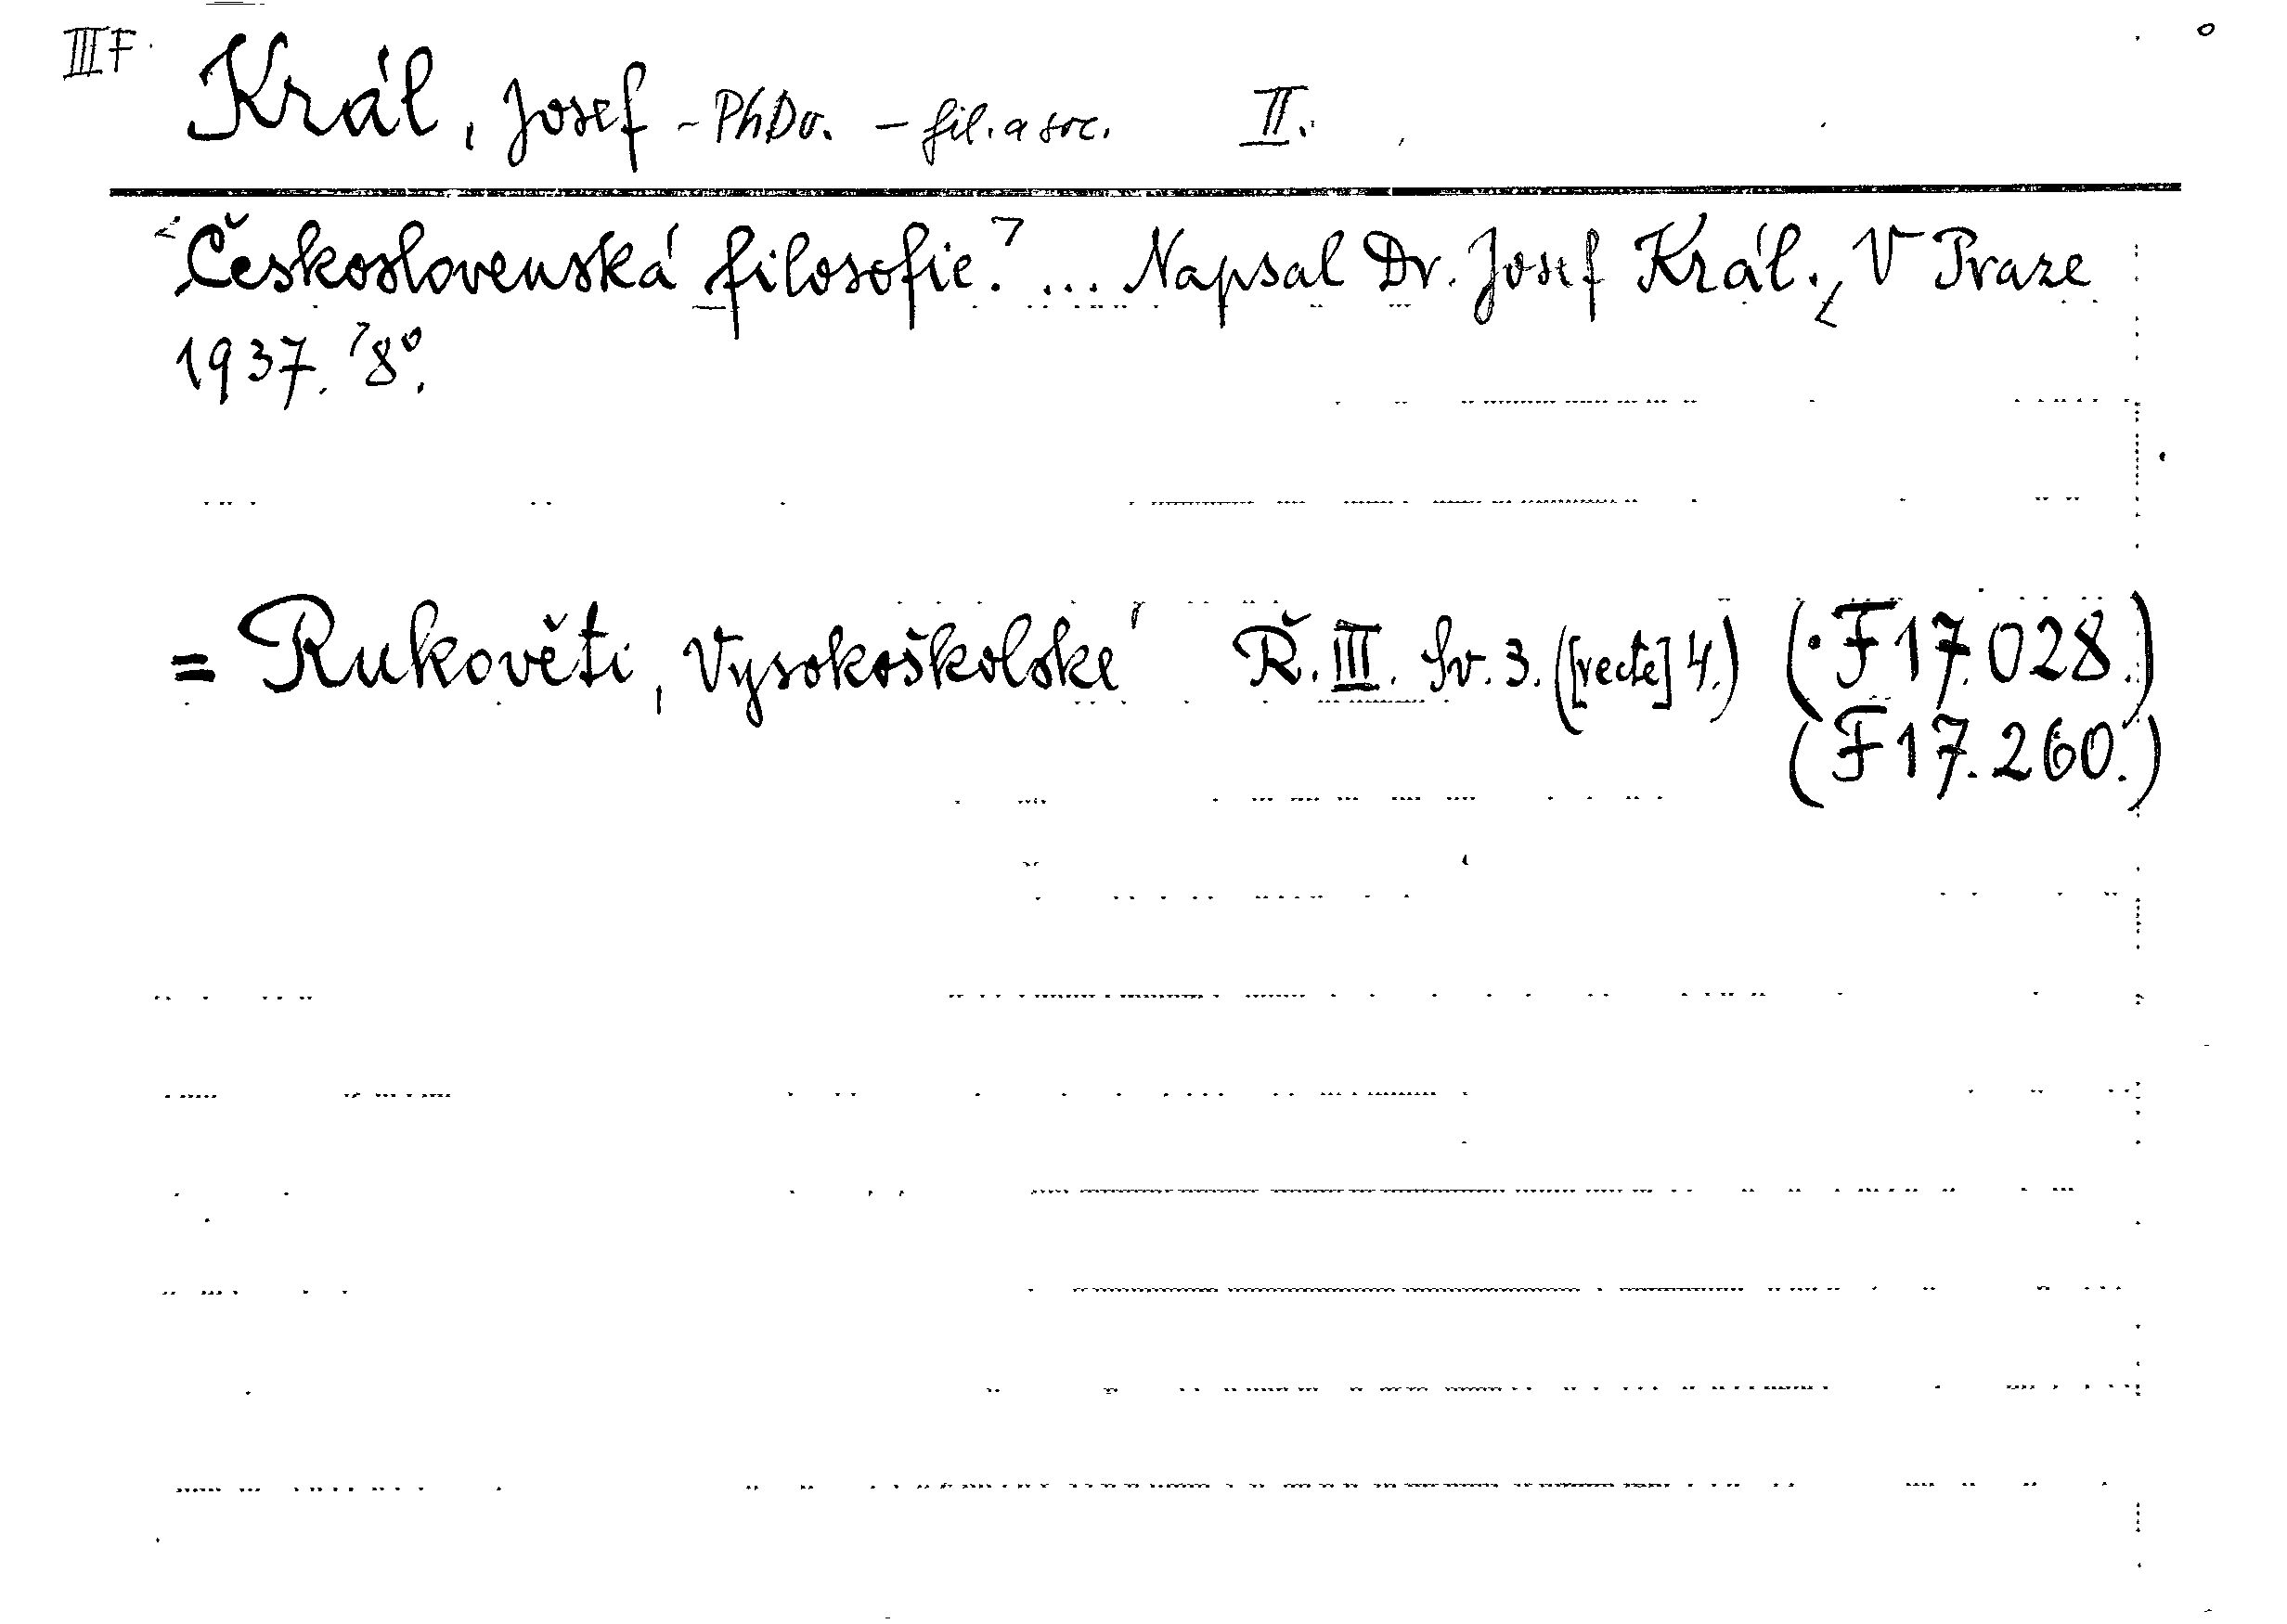 III F.
Král, Josef - PhDr. - fil. a soc. II.
<Československá filosofie.> ... Napsal Dr. Josef Král. <V Praze
1937.> 8°.
= Rukověti, Vysokoškolské Ř. III. Sv. 3. ([recte] 4.) (·F 17.028.)
(F 17.260.)